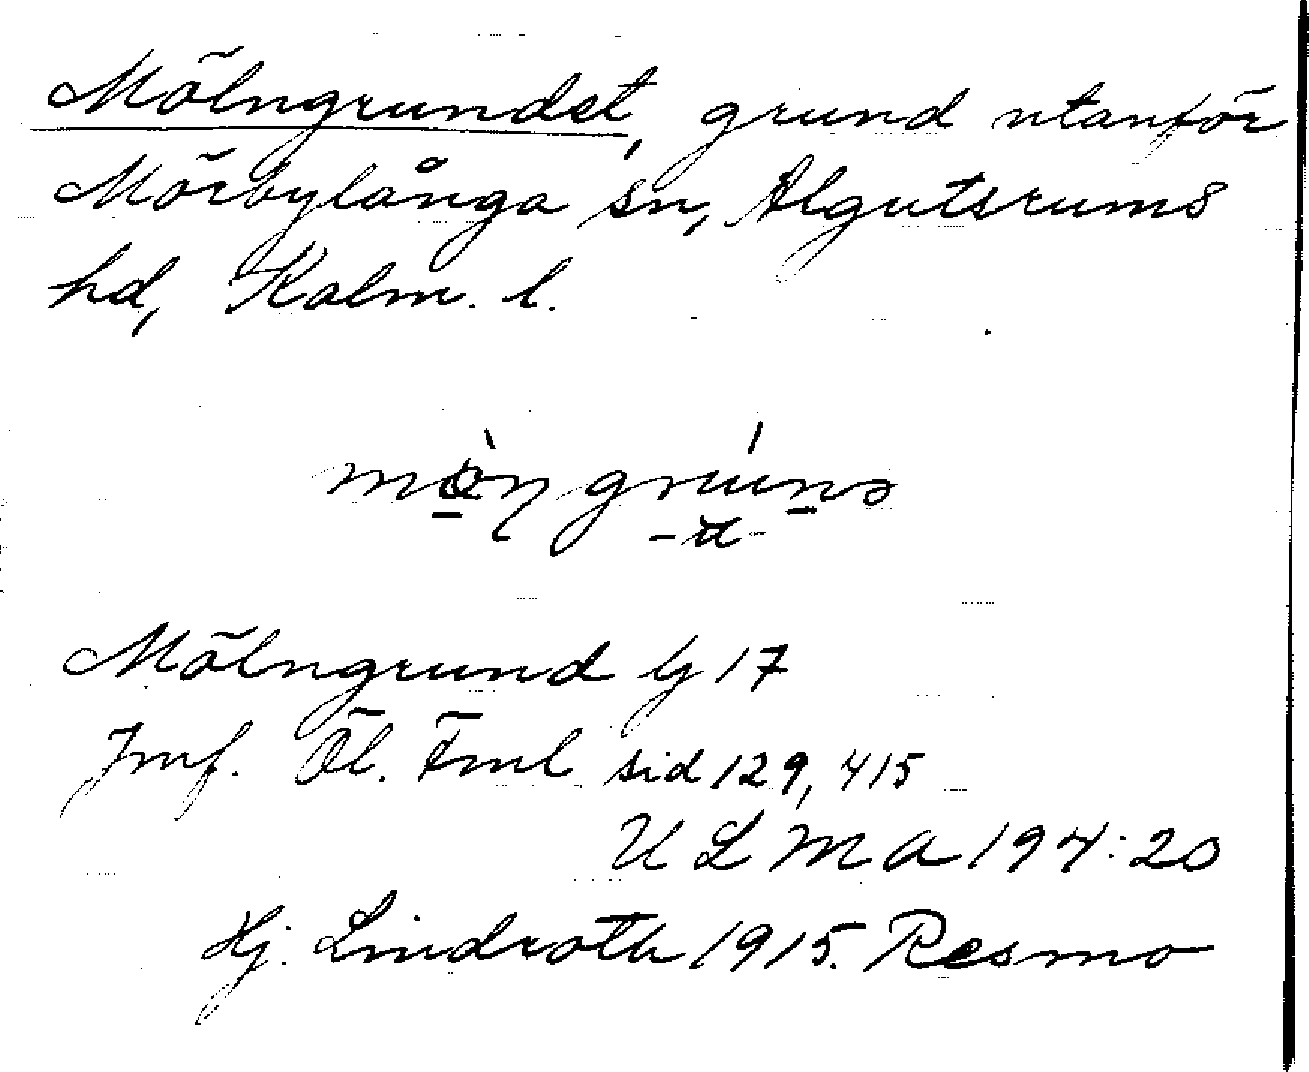 Mölngrundet, grund utanför
Mörbylånga sn, Algutsrums
hd, Kalm. l.
Mölngrund Lj 17
Jmf. Öl. Fml sid 129, 415
ULMA 194:20
Hj. Lindroth 1915. Resmo